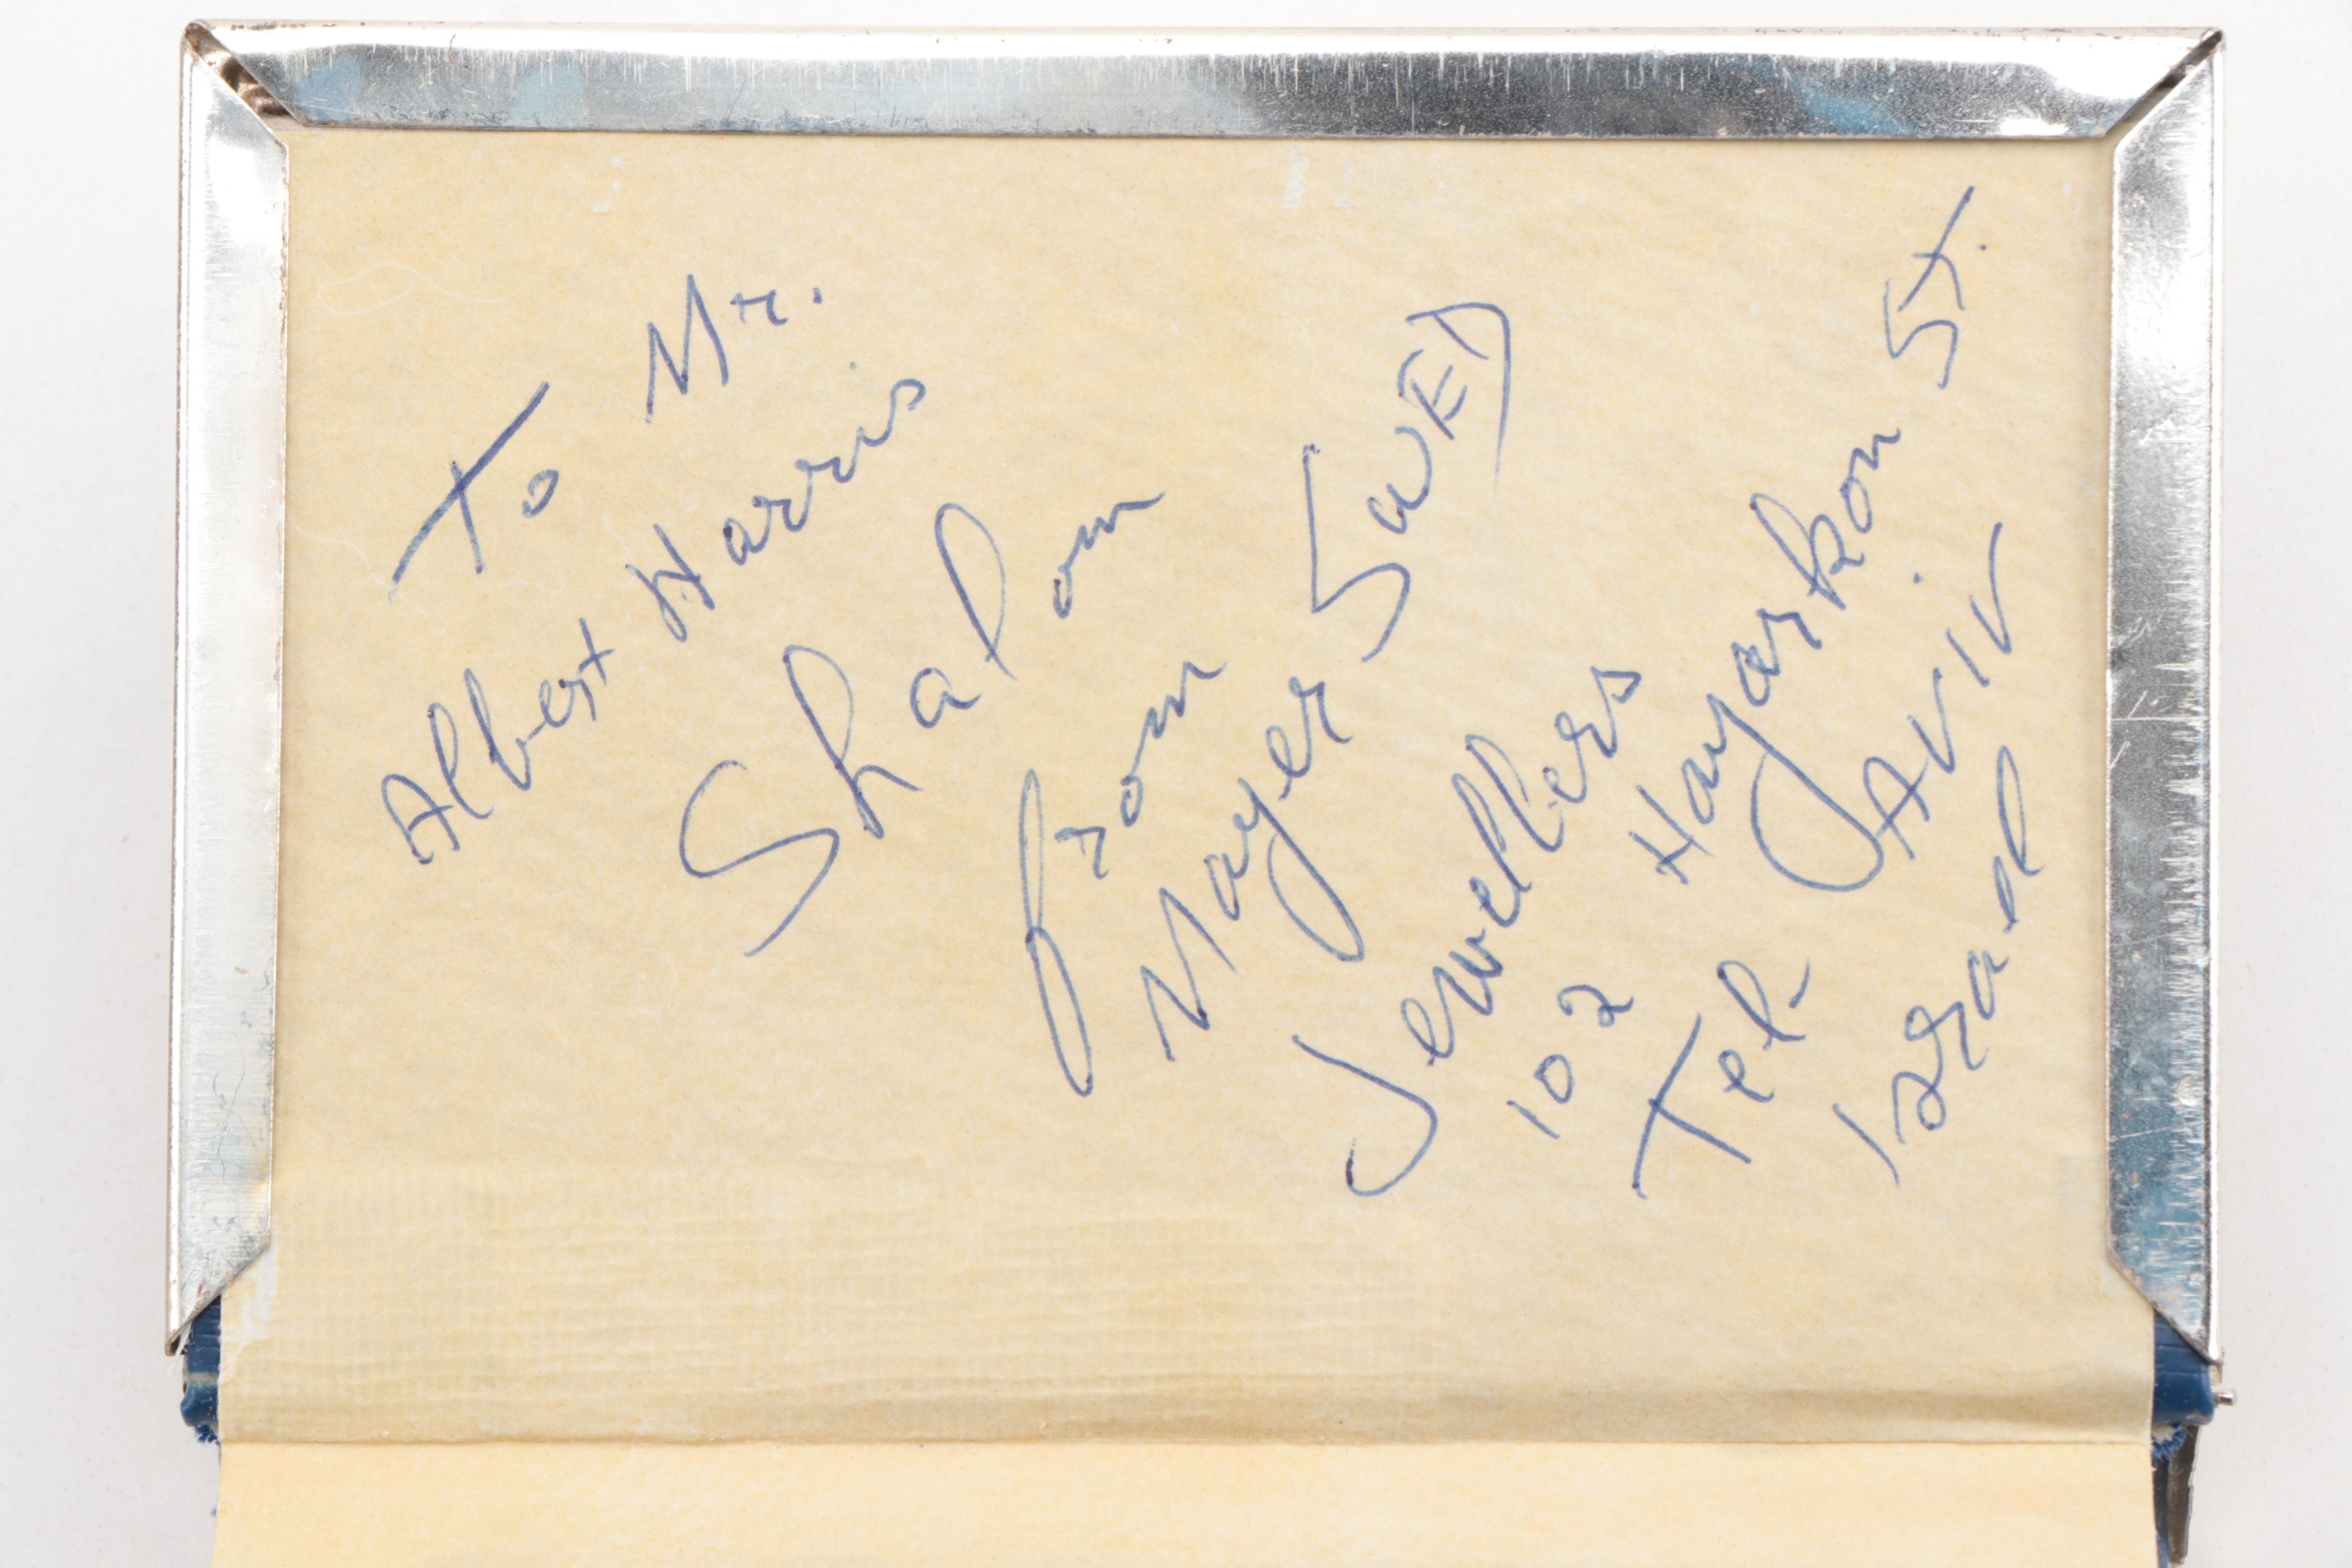 To Mr.
Albert Harris
Shalom
from
Mayer SWED
Jewellers
102 Hayarkon St.
Tel-AVIV
Israel